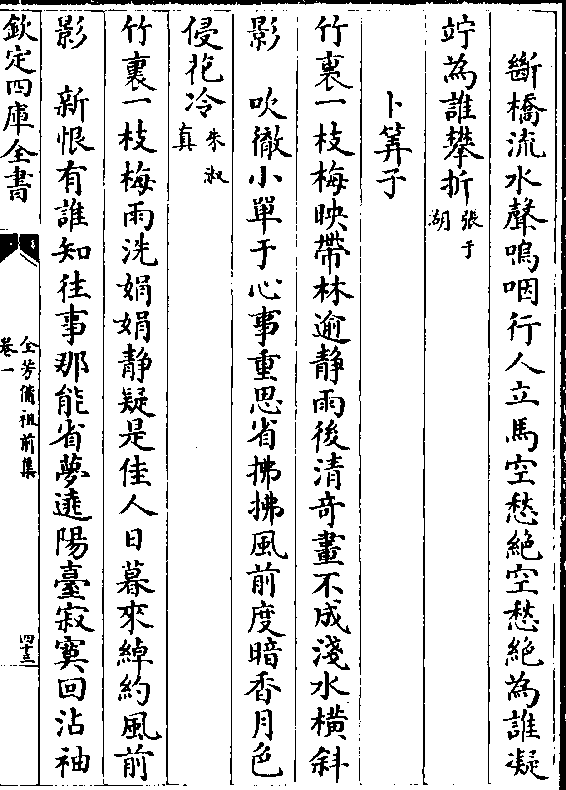 斷橋流水聲嗚咽行人立馬空愁絶空愁絶為誰凝
竚為誰攀折張于湖
卜筭子
竹裏一枝梅映帶林逾静雨後清竒畫不成淺水横斜
影　吹徹小單于心事重思省拂拂風前度暗香月色
侵花冷朱淑真
竹裏一枝梅雨洗娟娟静疑是佳人日暮來綽約風前
影　新恨有誰知往事那能省夢遶陽臺寂寞回沾袖
欽定四庫全書
全芳備祖前集
卷一
四十三